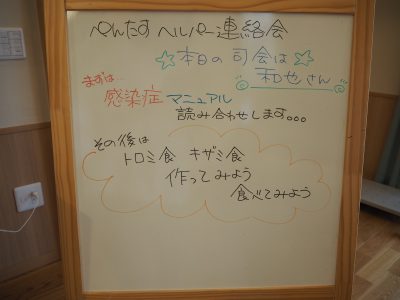 ぺんたす ヘルパー連絡会
☆本日の司会は☆
和也さん
まずは...
感染症マニュアル
読み合わせします。。。
その後は
トロミ食 キザミ食
作ってみよう
食べてみよう